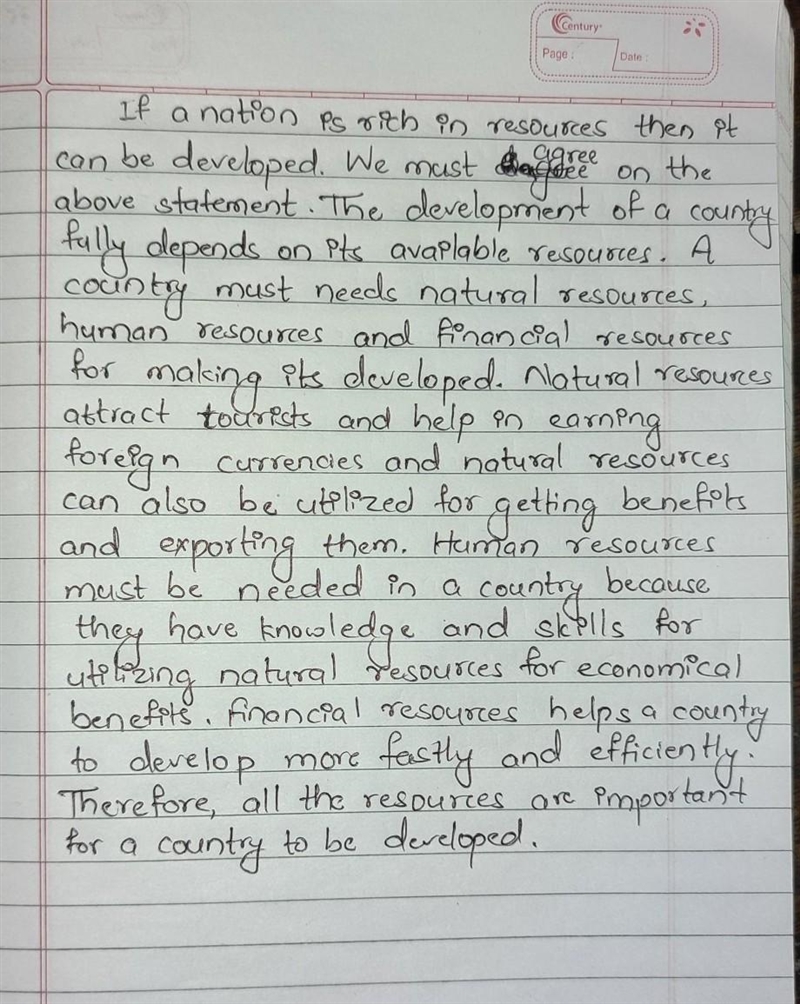 Century
Page :
Date :
If a nation is rich in resources then it
can be developed. We must agree on the
above statement. The development of a country
fully depends on its available resources. A
country must needs natural resources,
human resources and financial resources
for making its developed. Natural resources
attract tourists and help in earning
foreign currencies and natural resources
can also be utilized for getting benefits
and exporting them. Human resources
must be needed in a country because
they have knowledge and skills for
utilizing natural resources for economical
benefits. Financial resources helps a country
to develop more fastly and efficiently.
Therefore, all the resources are important
for a country to be developed.